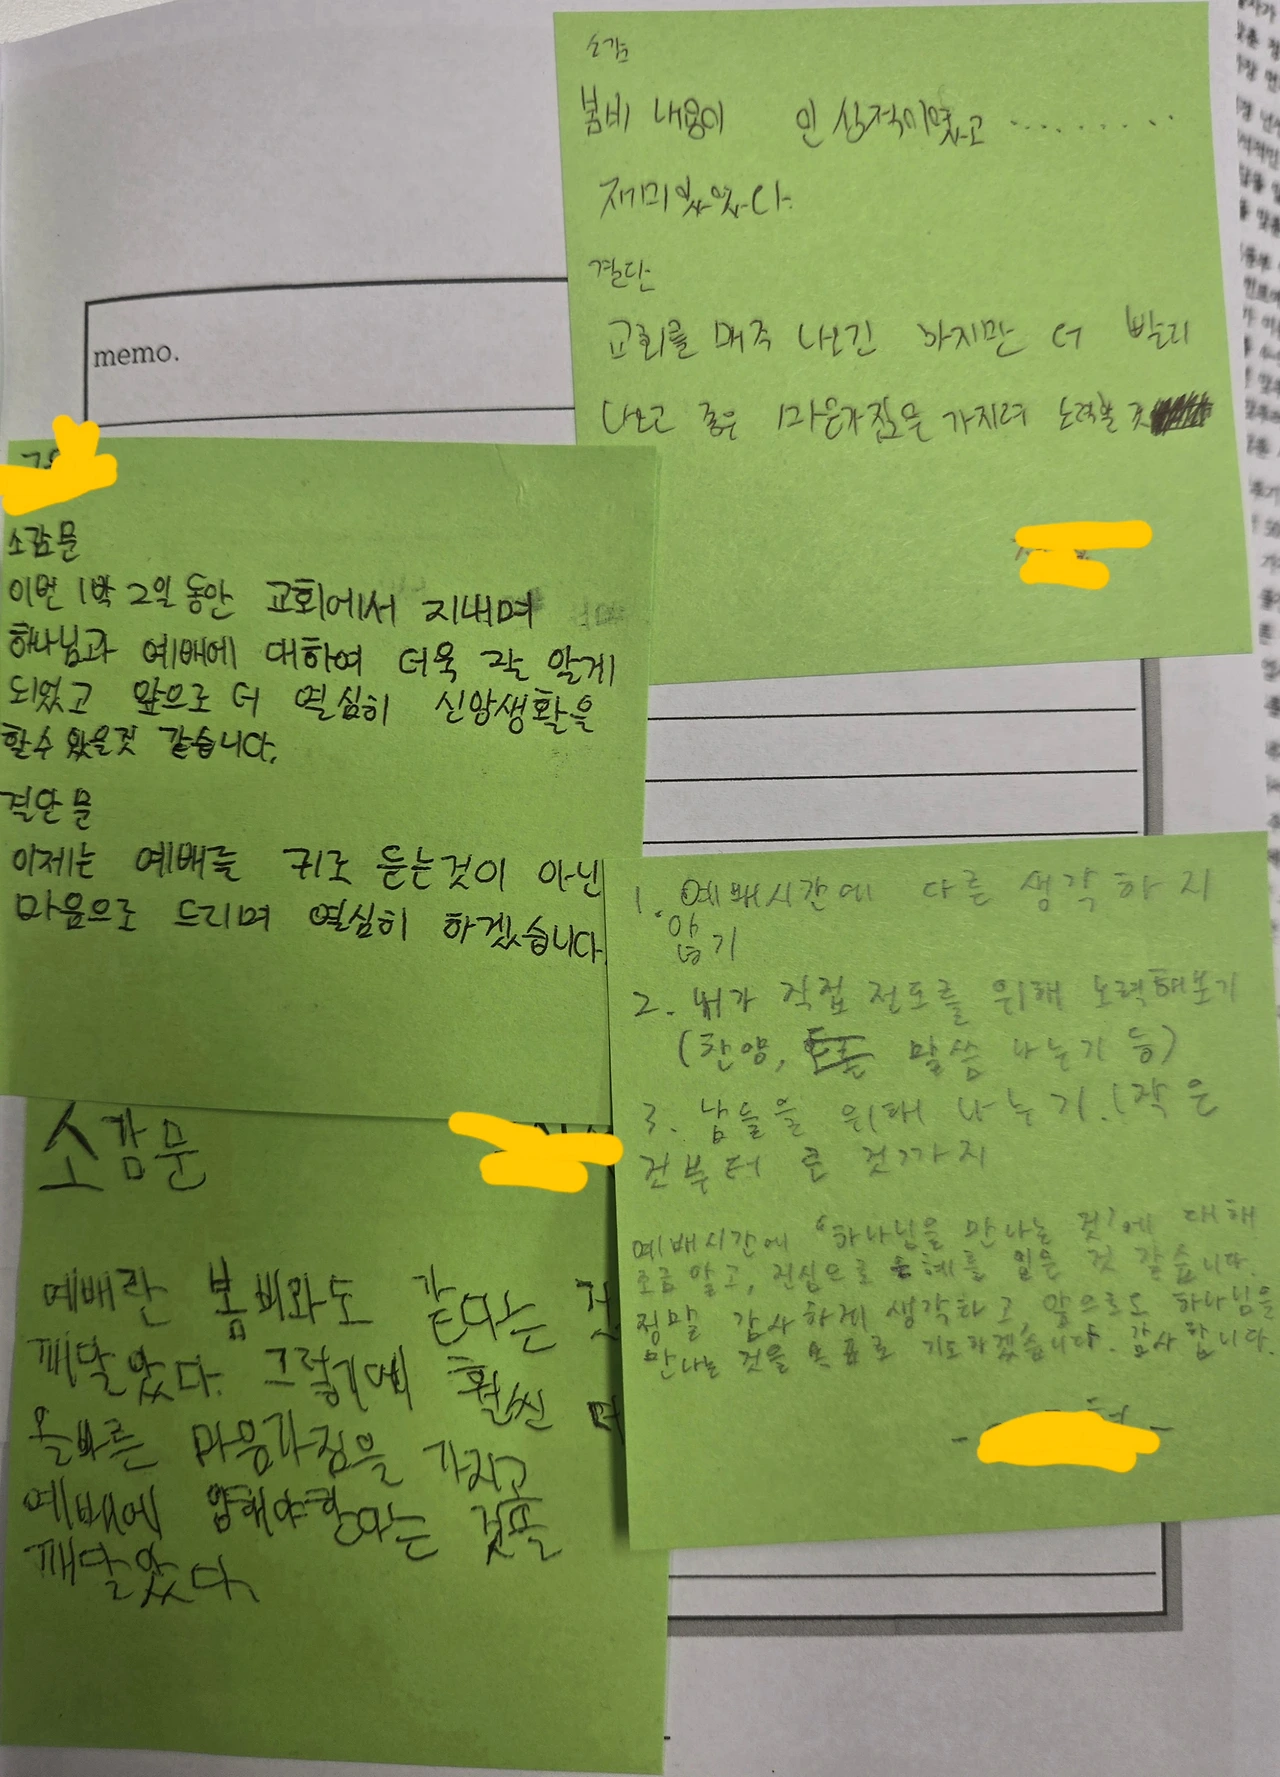 소감
봄비 내용이 인상적이였고 .........
재미있었다.
결단
교회를 매주 나오긴 하지만 더 빨리
나오고 좋은 마음가짐을 가지려 노력할
memo.
소감문
이번 1박 2일 동안 교회에서 지내며
하나님과 예배에 대하여 더욱 잘 알게
되었고 앞으로 더 열심히 신앙생활을
할수 있을것 같습니다.
결단문
이제는 예배를 귀로 듣는것이 아닌
마음으로 드리며 열심히 하겠습니다.
1. 예배시간에 다른 생각하지
않기
2. 내가 직접 전도를 위해 노력해보기
(찬양, 말씀 나누기 등)
3. 남들을 위해 나누기. (작은
것부터 큰 것까지
예배시간에 "하나님을 만나는 것"에 대해
조금 알고, 진심으로 은혜를 입은 것 같습니다.
정말 감사하게 생각하고, 앞으로도 하나님을
만나는 것을 목표로 기도하겠습니다. 감사합니다.
소감문
예배란 봄비와도 같다는
깨달았다. 그렇기에 훨씬 더
올바른 마음가짐을 가지고
예배에 임해야한다는 것을
깨달았다.